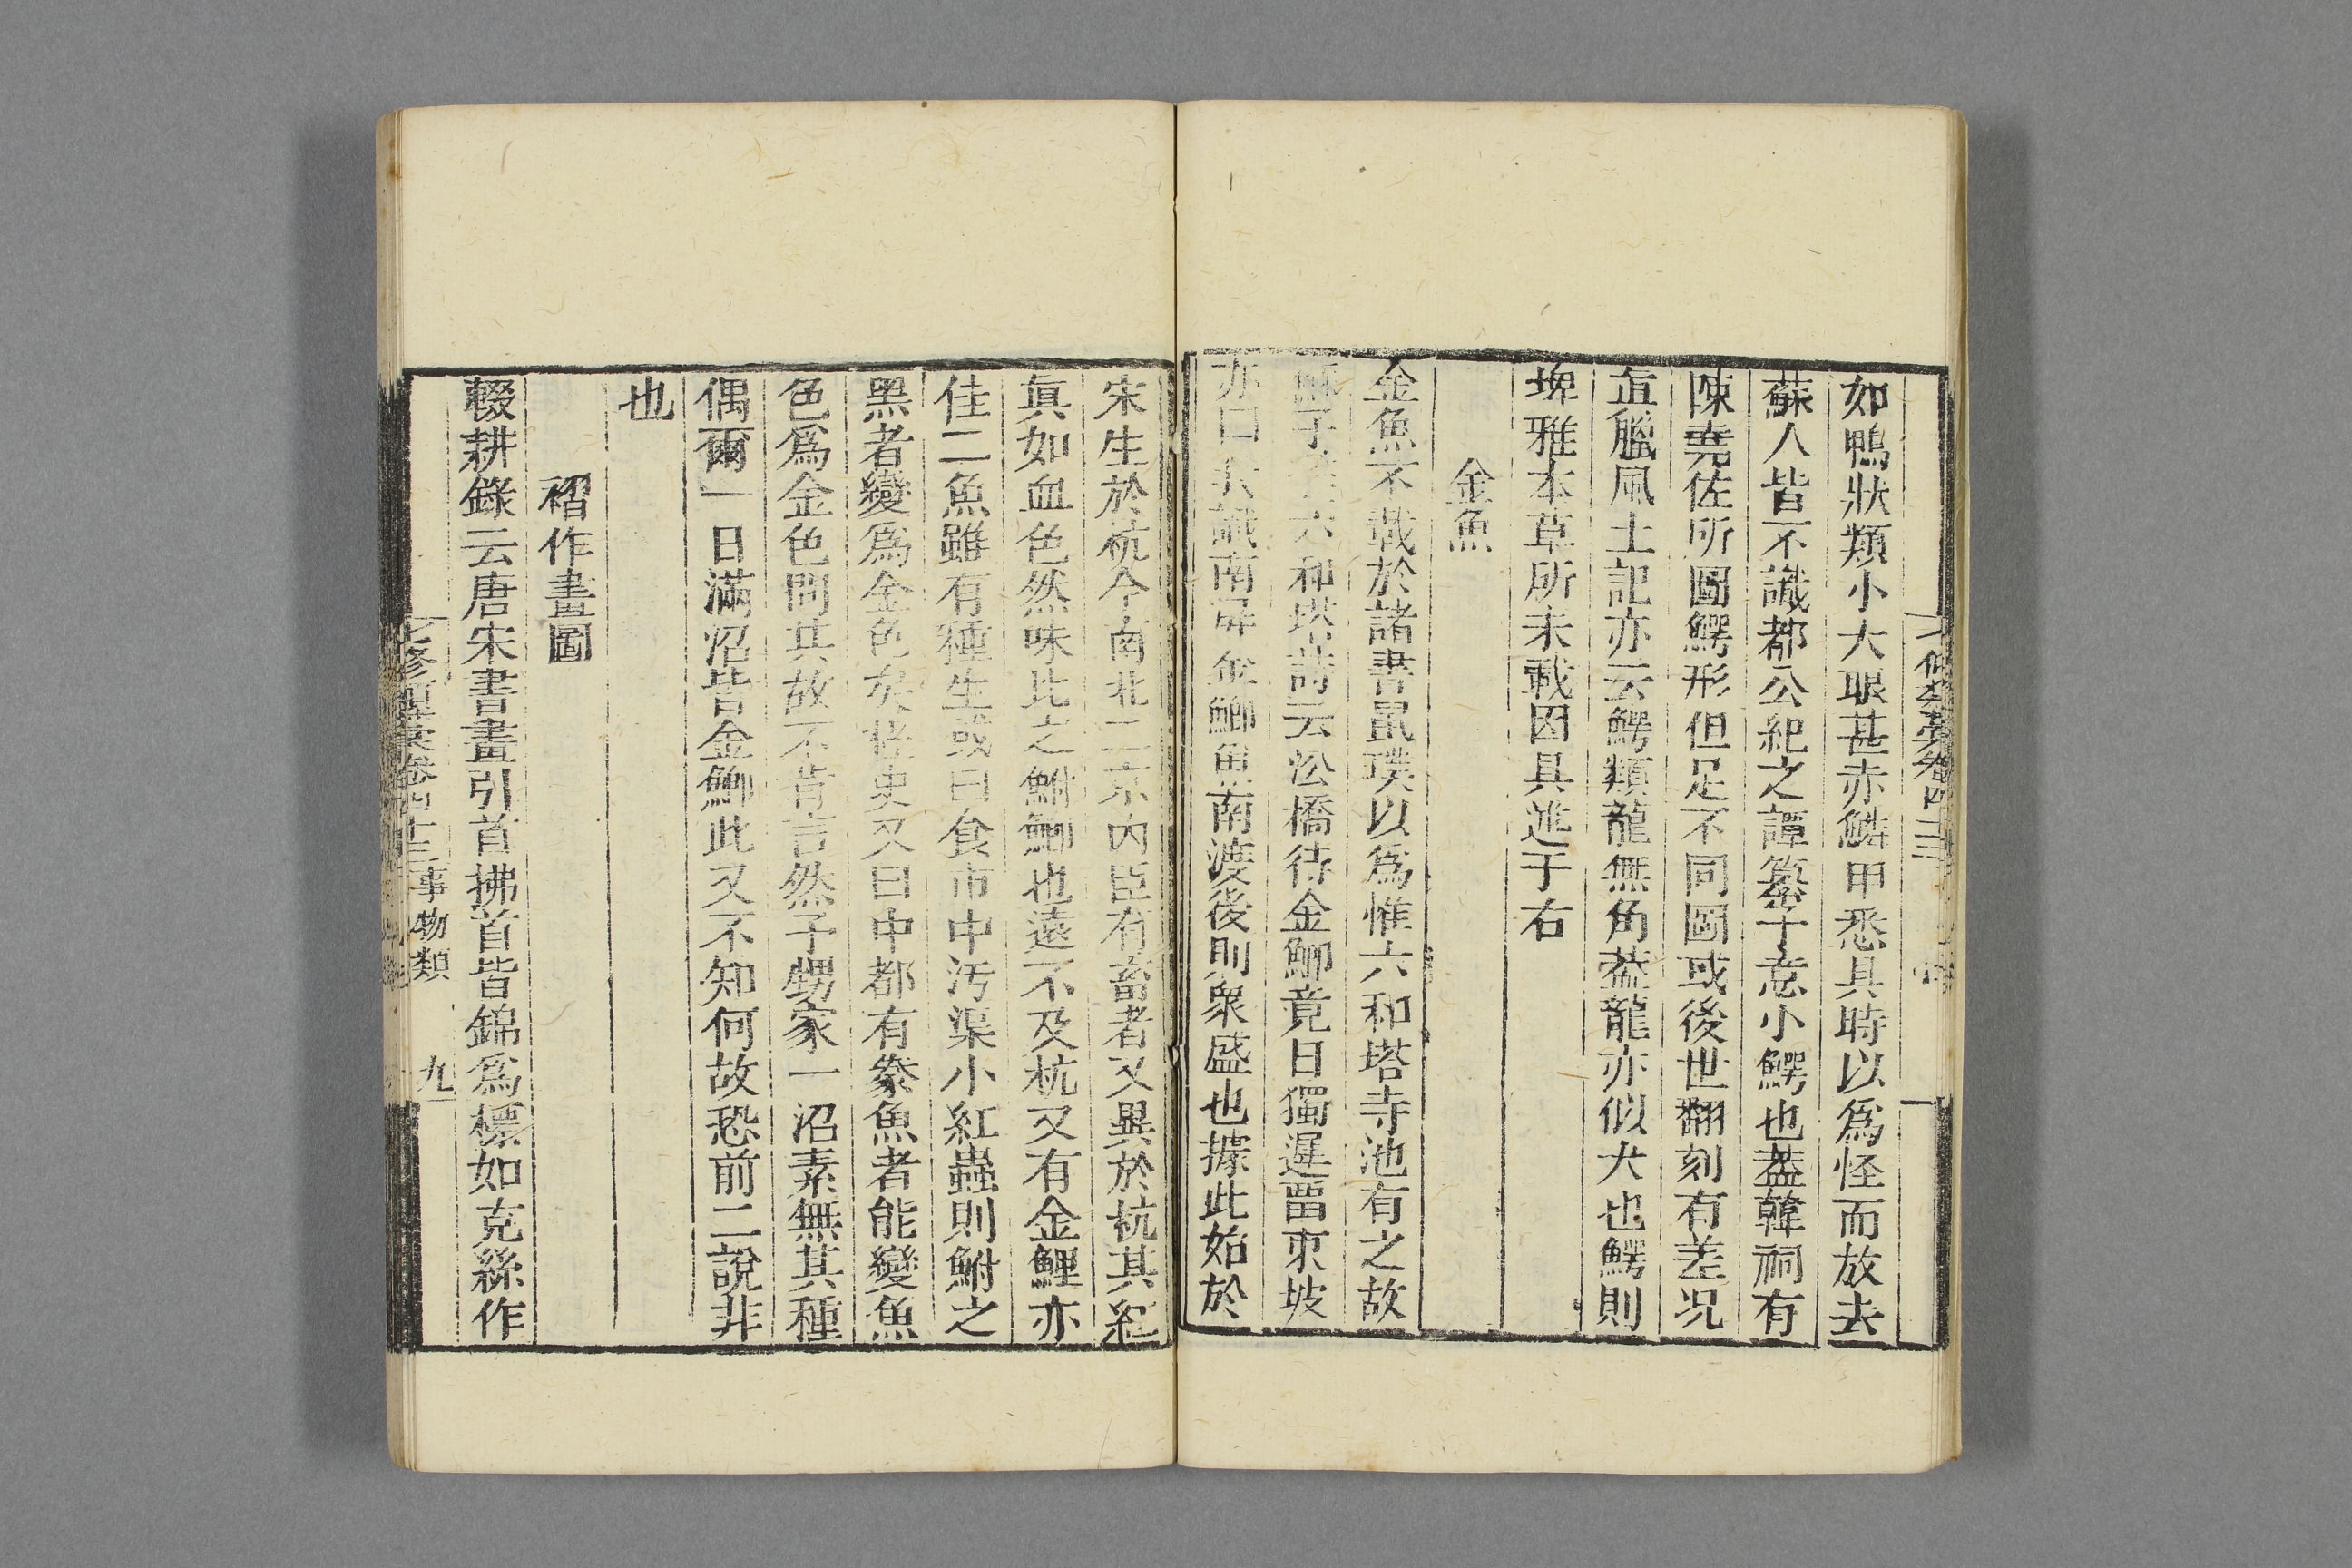 如鴨狀類小大眼甚赤鱗甲悉具時以爲怪而放去
蘇人皆不識都公紀之譚纂予意小鰐也蓋韓祠有
陳堯佐所圖鰐形但足不同圖或後世翻刻有差况
直臘風土記亦云鰐類龍無角益龍亦似犬也鰐則
埤雅本草所未載因具述于右
金魚
金魚不載於諸書鼠璞以爲惟六和塔寺池有之故
蘇子 六和塔詩云沿橋待金鯽竟日獨遲畱東坡
亦曰 識南屏金鯽魚南渡後則衆盛也據此始於
宋生於杭今南北二京內臣有畜者又異於杭其紅
眞如血色然味比之鮒鯽也遠不及杭又有金鯉亦
佳二魚雖有種生或曰食市中汚渠小紅蟲則鮒之
黑者變爲金色矣 史又曰中都有豢魚者能變魚
色爲金色問其故不肯言然子甥家一沼素無其種
偶爾一日滿沼皆金鯽此又不知何故恐前二說非
也
褶作畫圖
輟耕錄云唐宋書畫引首拂首皆錦爲標如克絲作
七修類稾卷四十三 事物類 九